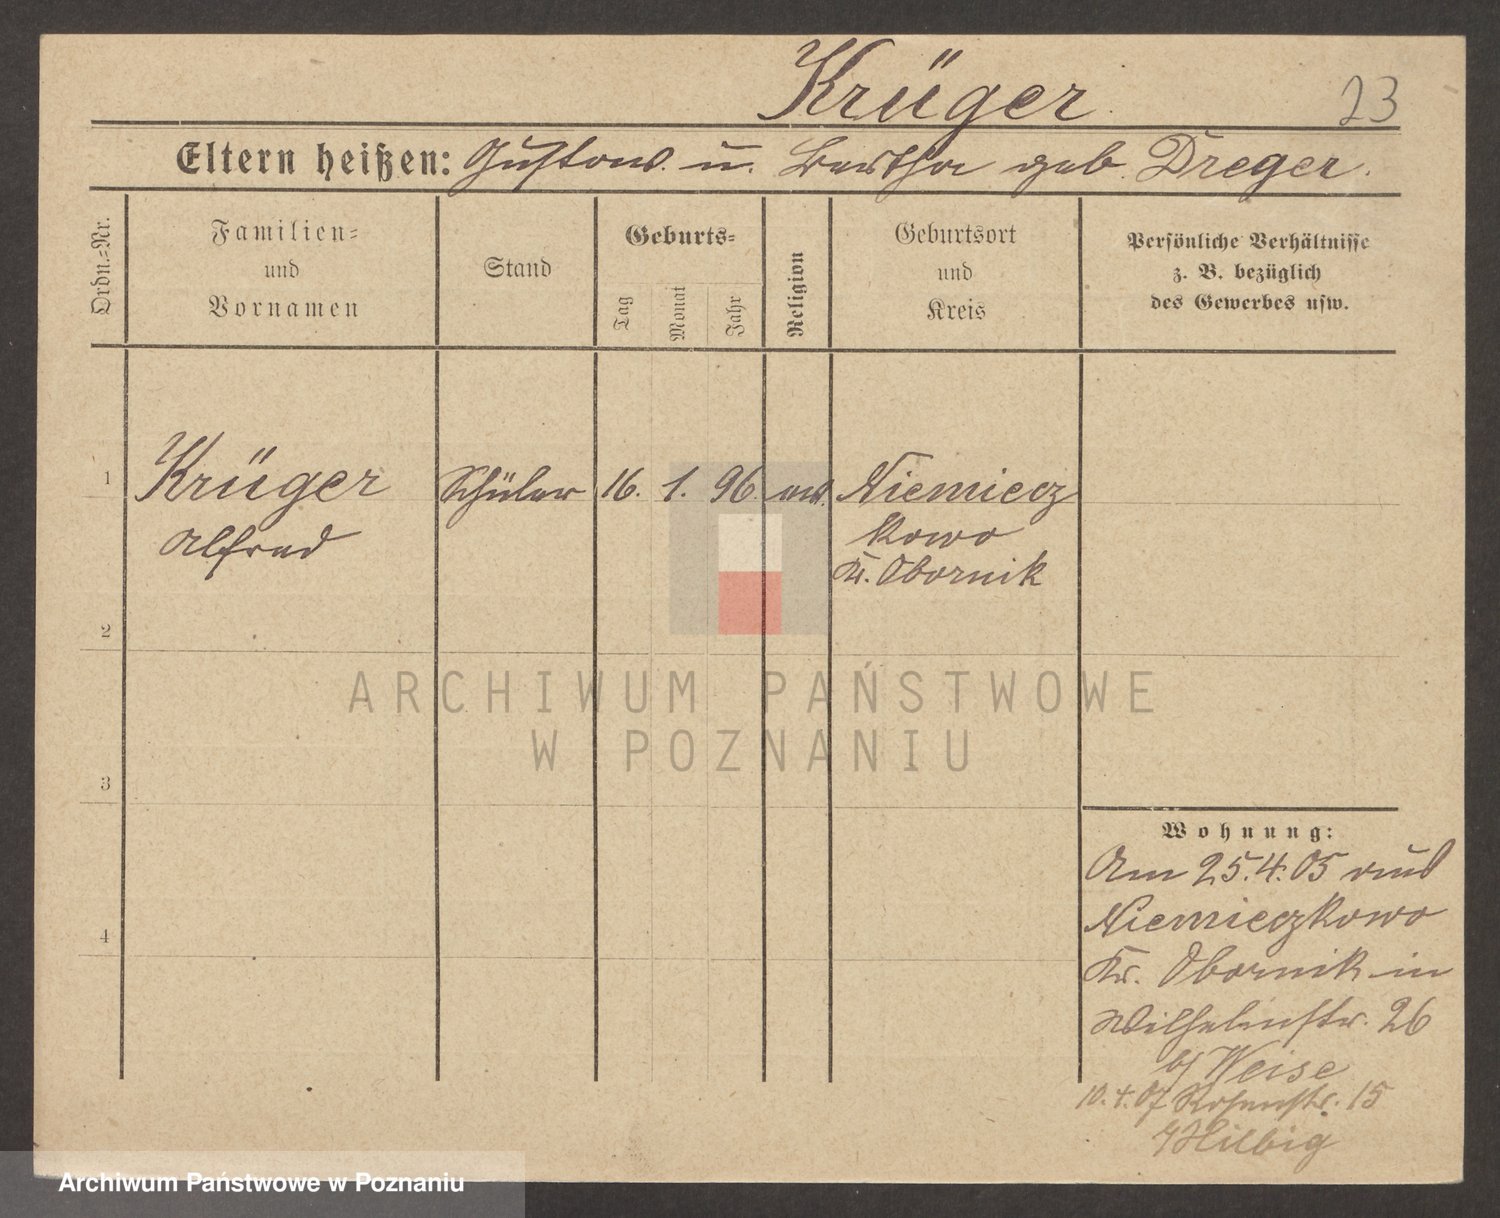 Krüger
23
Eltern heißen: Gustav u. Bertha geb. Dreger.
Ordn.-Nr.
Familien-
und
Vornamen
Stand
Geburts-
Tag
Monat
Jahr
Religion
Geburtsort
und
Kreis
Persönliche Verhältnisse
z. B. bezüglich
des Gewerbes usw.
1
Krüger
Schüler
16.
1.
96.
ev.
Niemiecz
kowo
Alfred
Kr. Obornik
2
ARCHIWUM PAŃSTWOWE
W POZNANIU
3
Wohnung:
Am 25.4.05 aus
Niemieczkowo
4
Kr. Obornik in
Wilhelmstr. 26
b/ Weise
10.4.07 Rosenstr. 15
b/ Hilbig
Archiwum Państwowe w Poznaniu